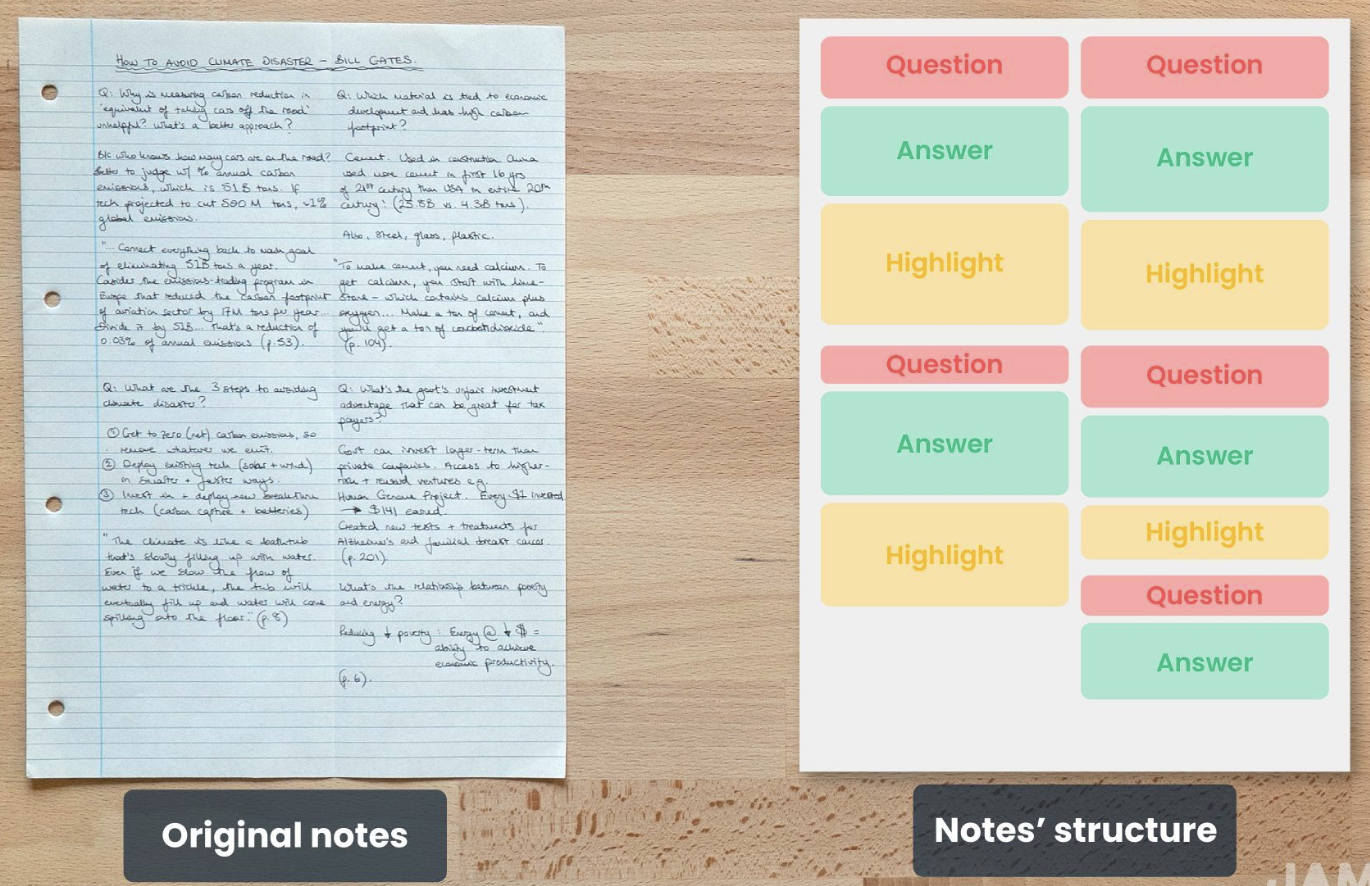 HOW TO AVOID CLIMATE DISASTER - BILL GATES.
Q: Why is measuring carbon reduction in
'equivalent of taking cars off the road'
unhelpful? What's a better approach?
B/c who knows how many cars are on the road?
Better to judge w/ % annual carbon
emissions, which is 51B tons. If
tech projected to cut 500 M tons, ~1%
global emissions.
"... Connect everything back to main goal
of eliminating 51B tons a year.
Consider the emissions-trading program in
Europe that reduced the carbon footprint
of aviation sector by 17M tons per year...
Divide it by 51B... That's a reduction of
0.03% of annual emissions (p.53).
Q: What are the 3 steps to avoiding
climate disaster?
① Get to zero (net) carbon emissions, so
remove whatever we emit.
② Deploy existing tech (solar + wind)
in smarter + faster ways.
③ Invest in + deploy new breakthru
tech (carbon capture + batteries)
"The climate is like a bathtub
that's slowly filling up with water.
Even if we slow the flow of
water to a trickle, the tub will
eventually fill up and water will come
spilling onto the floor." (p.8)
Q: Which material is tied to economic
development and has high carbon
footprint?
Cement. Used in construction. China
used more cement in first 16 yrs
of 21st century than USA in entire 20th
century! (25.8B vs. 4.3B tons).
Also, steel, glass, plastic.
"To make cement, you need calcium. To
get calcium, you start with lime-
stone - which contains calcium plus
oxygen... Make a ton of cement, and
you'll get a ton of carbon dioxide".
(p. 104).
Q: What's the govt's unfair investment
advantage that can be great for tax
payers?
Govt can invest longer-term than
private companies. Access to higher-
risk + reward ventures e.g.
Human Genome Project. Every $1 invested
→ $141 earned.
Created new tests + treatments for
Alzheimer's and familial breast cancer.
(p. 201).
What's the relationship between poverty
and energy?
Reducing ↓ poverty: Energy @ ↓ $ =
ability to achieve
economic productivity.
(p. 6).
Original notes
Question
Answer
Highlight
Question
Answer
Highlight
Question
Answer
Highlight
Question
Answer
Highlight
Question
Answer
Notes' structure
JAM